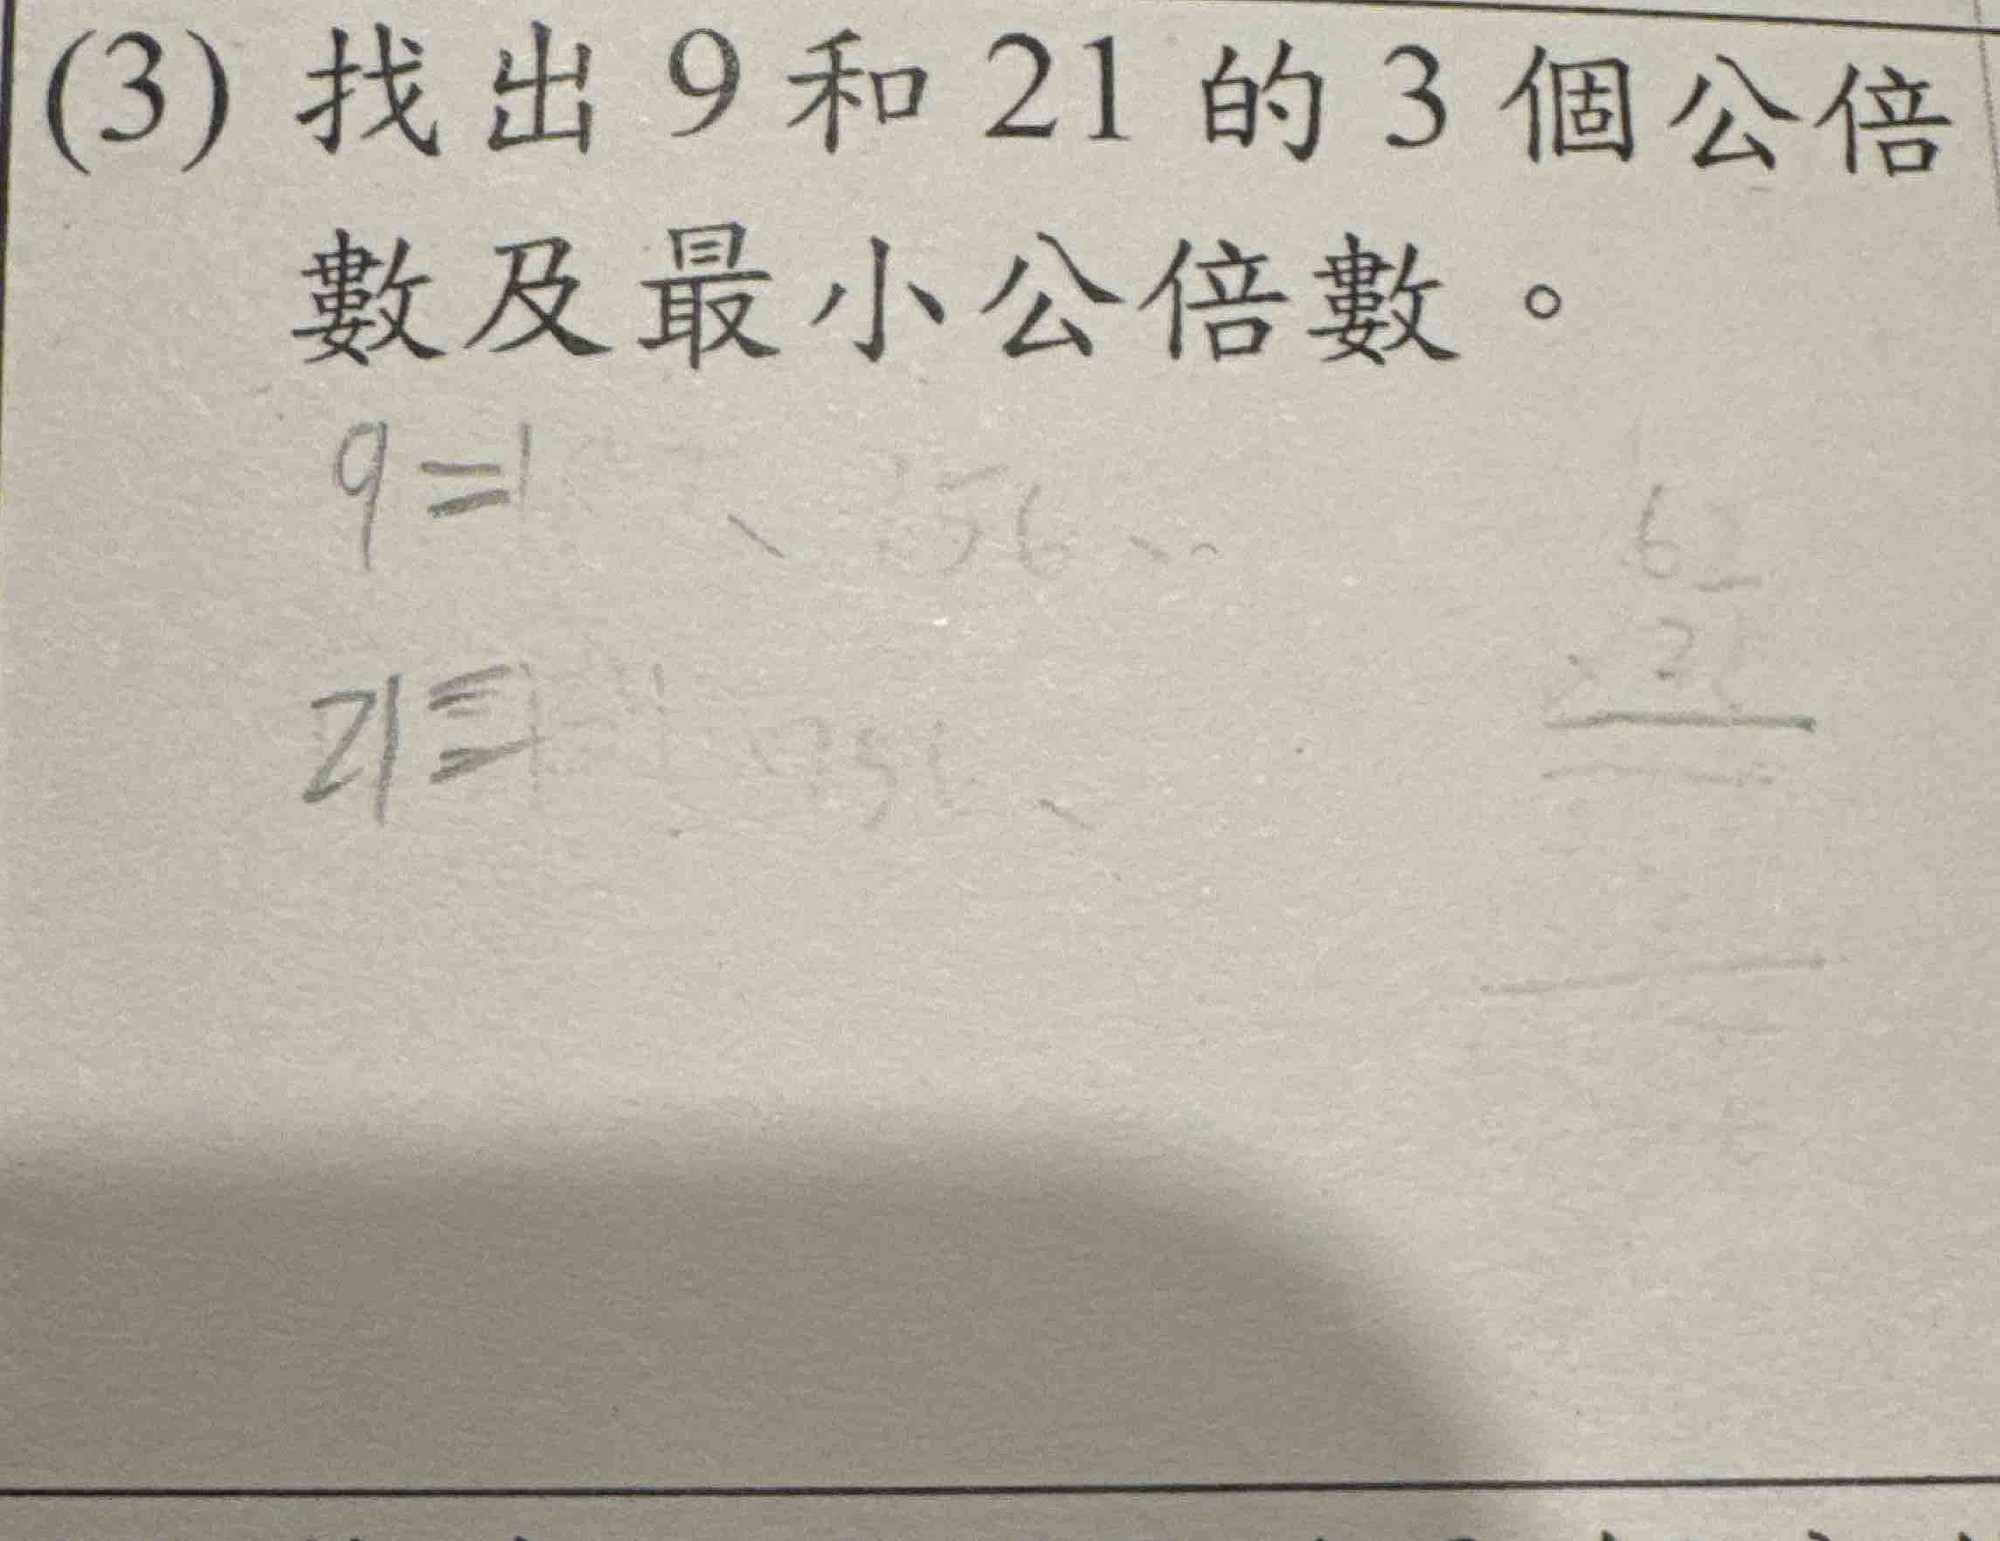 (3) 找出 9 和 21 的 3 個公倍
數及最小公倍數。
9=1
21=